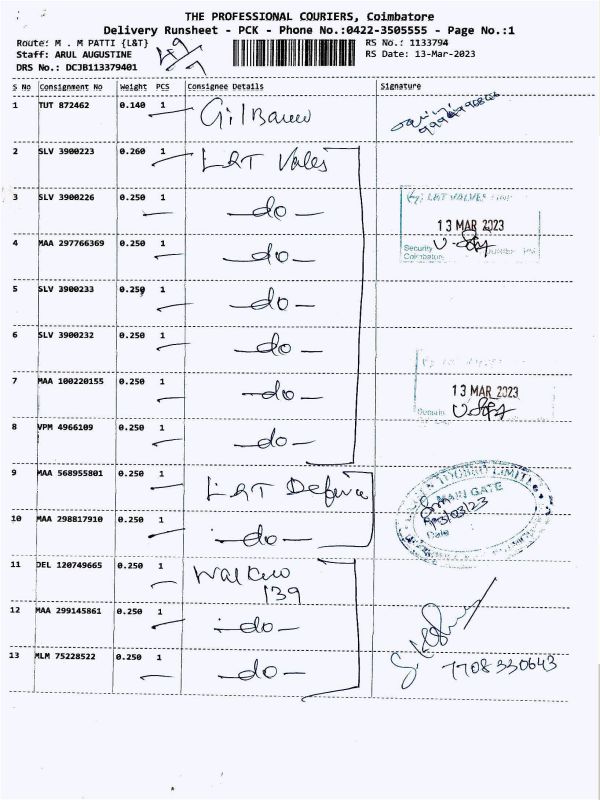 THE PROFESSIONAL COURIERS, Coimbatore
Delivery Runsheet - PCK - Phone No.:0422-3505555 - Page No.:1
Route: M . M PATTI {L&T} RS No.: 1133794
Staff: ARUL AUGUSTINE RS Date: 13-Mar-2023
DRS No.: DCJB113379401
S No Consignment No Weight PCS Consignee Details Signature
1 TUT 872462 0.140 1
2 SLV 3900223 0.260 1 L&T Vales
3 SLV 3900226 0.250 1 -do-
L&T VALVES
13 MAR 2023
4 MAA 297766369 0.250 1 -do-
Security
Coimbatore
5 SLV 3900233 0.250 1 -do-
6 SLV 3900232 0.250 1 -do-
7 MAA 100220155 0.250 1 -do-
13 MAR 2023
8 VPM 4966109 0.250 1 -do-
9 MAA 568955801 0.250 1 L&T Defence
LIMITED
MAIN GATE
13/03/23
Date
10 MAA 298817910 0.250 1 -do-
11 DEL 120749665 0.250 1
139
12 MAA 299145861 0.250 1 -do-
13 MLM 75228522 0.250 1 -do- 7708330643